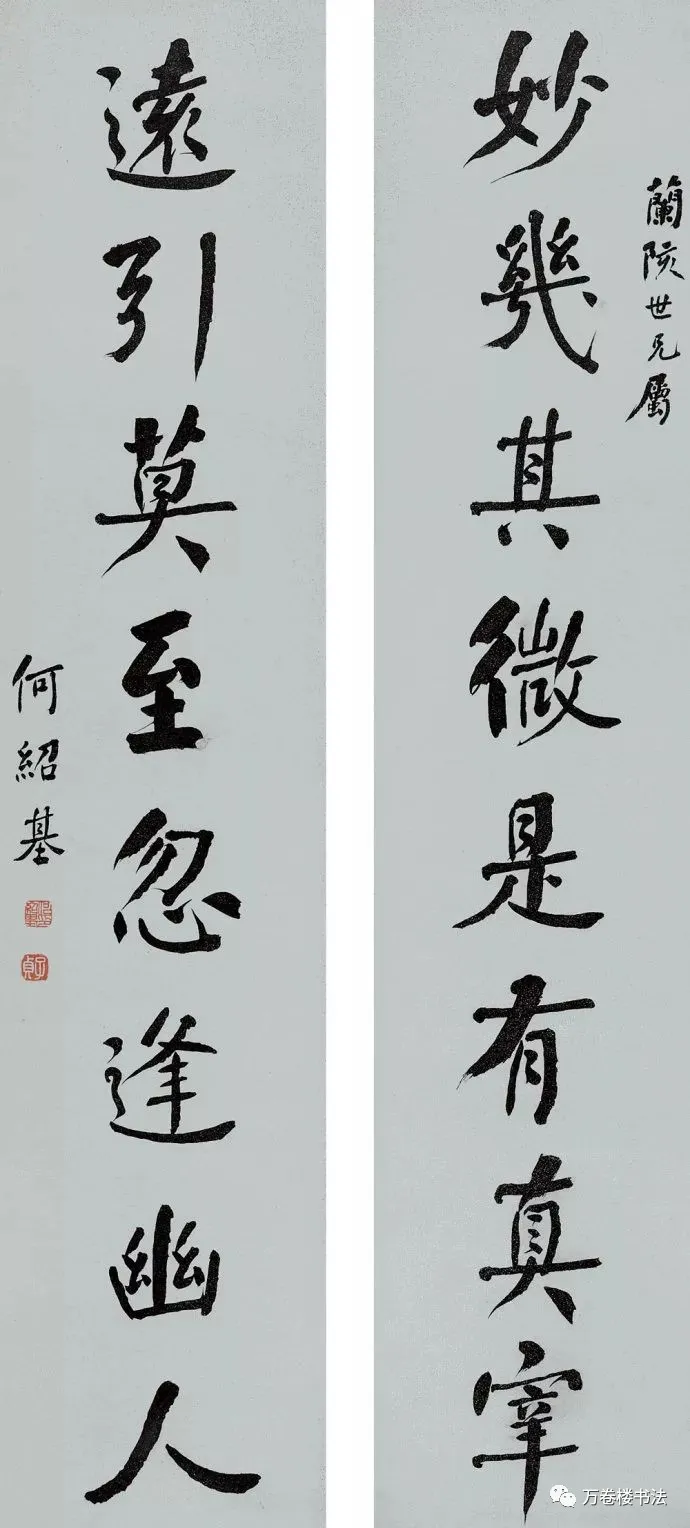 蘭陔世兄屬
妙幾其微是有真宰
遠引莫至忽逢幽人
何紹基
子貞
万卷楼书法